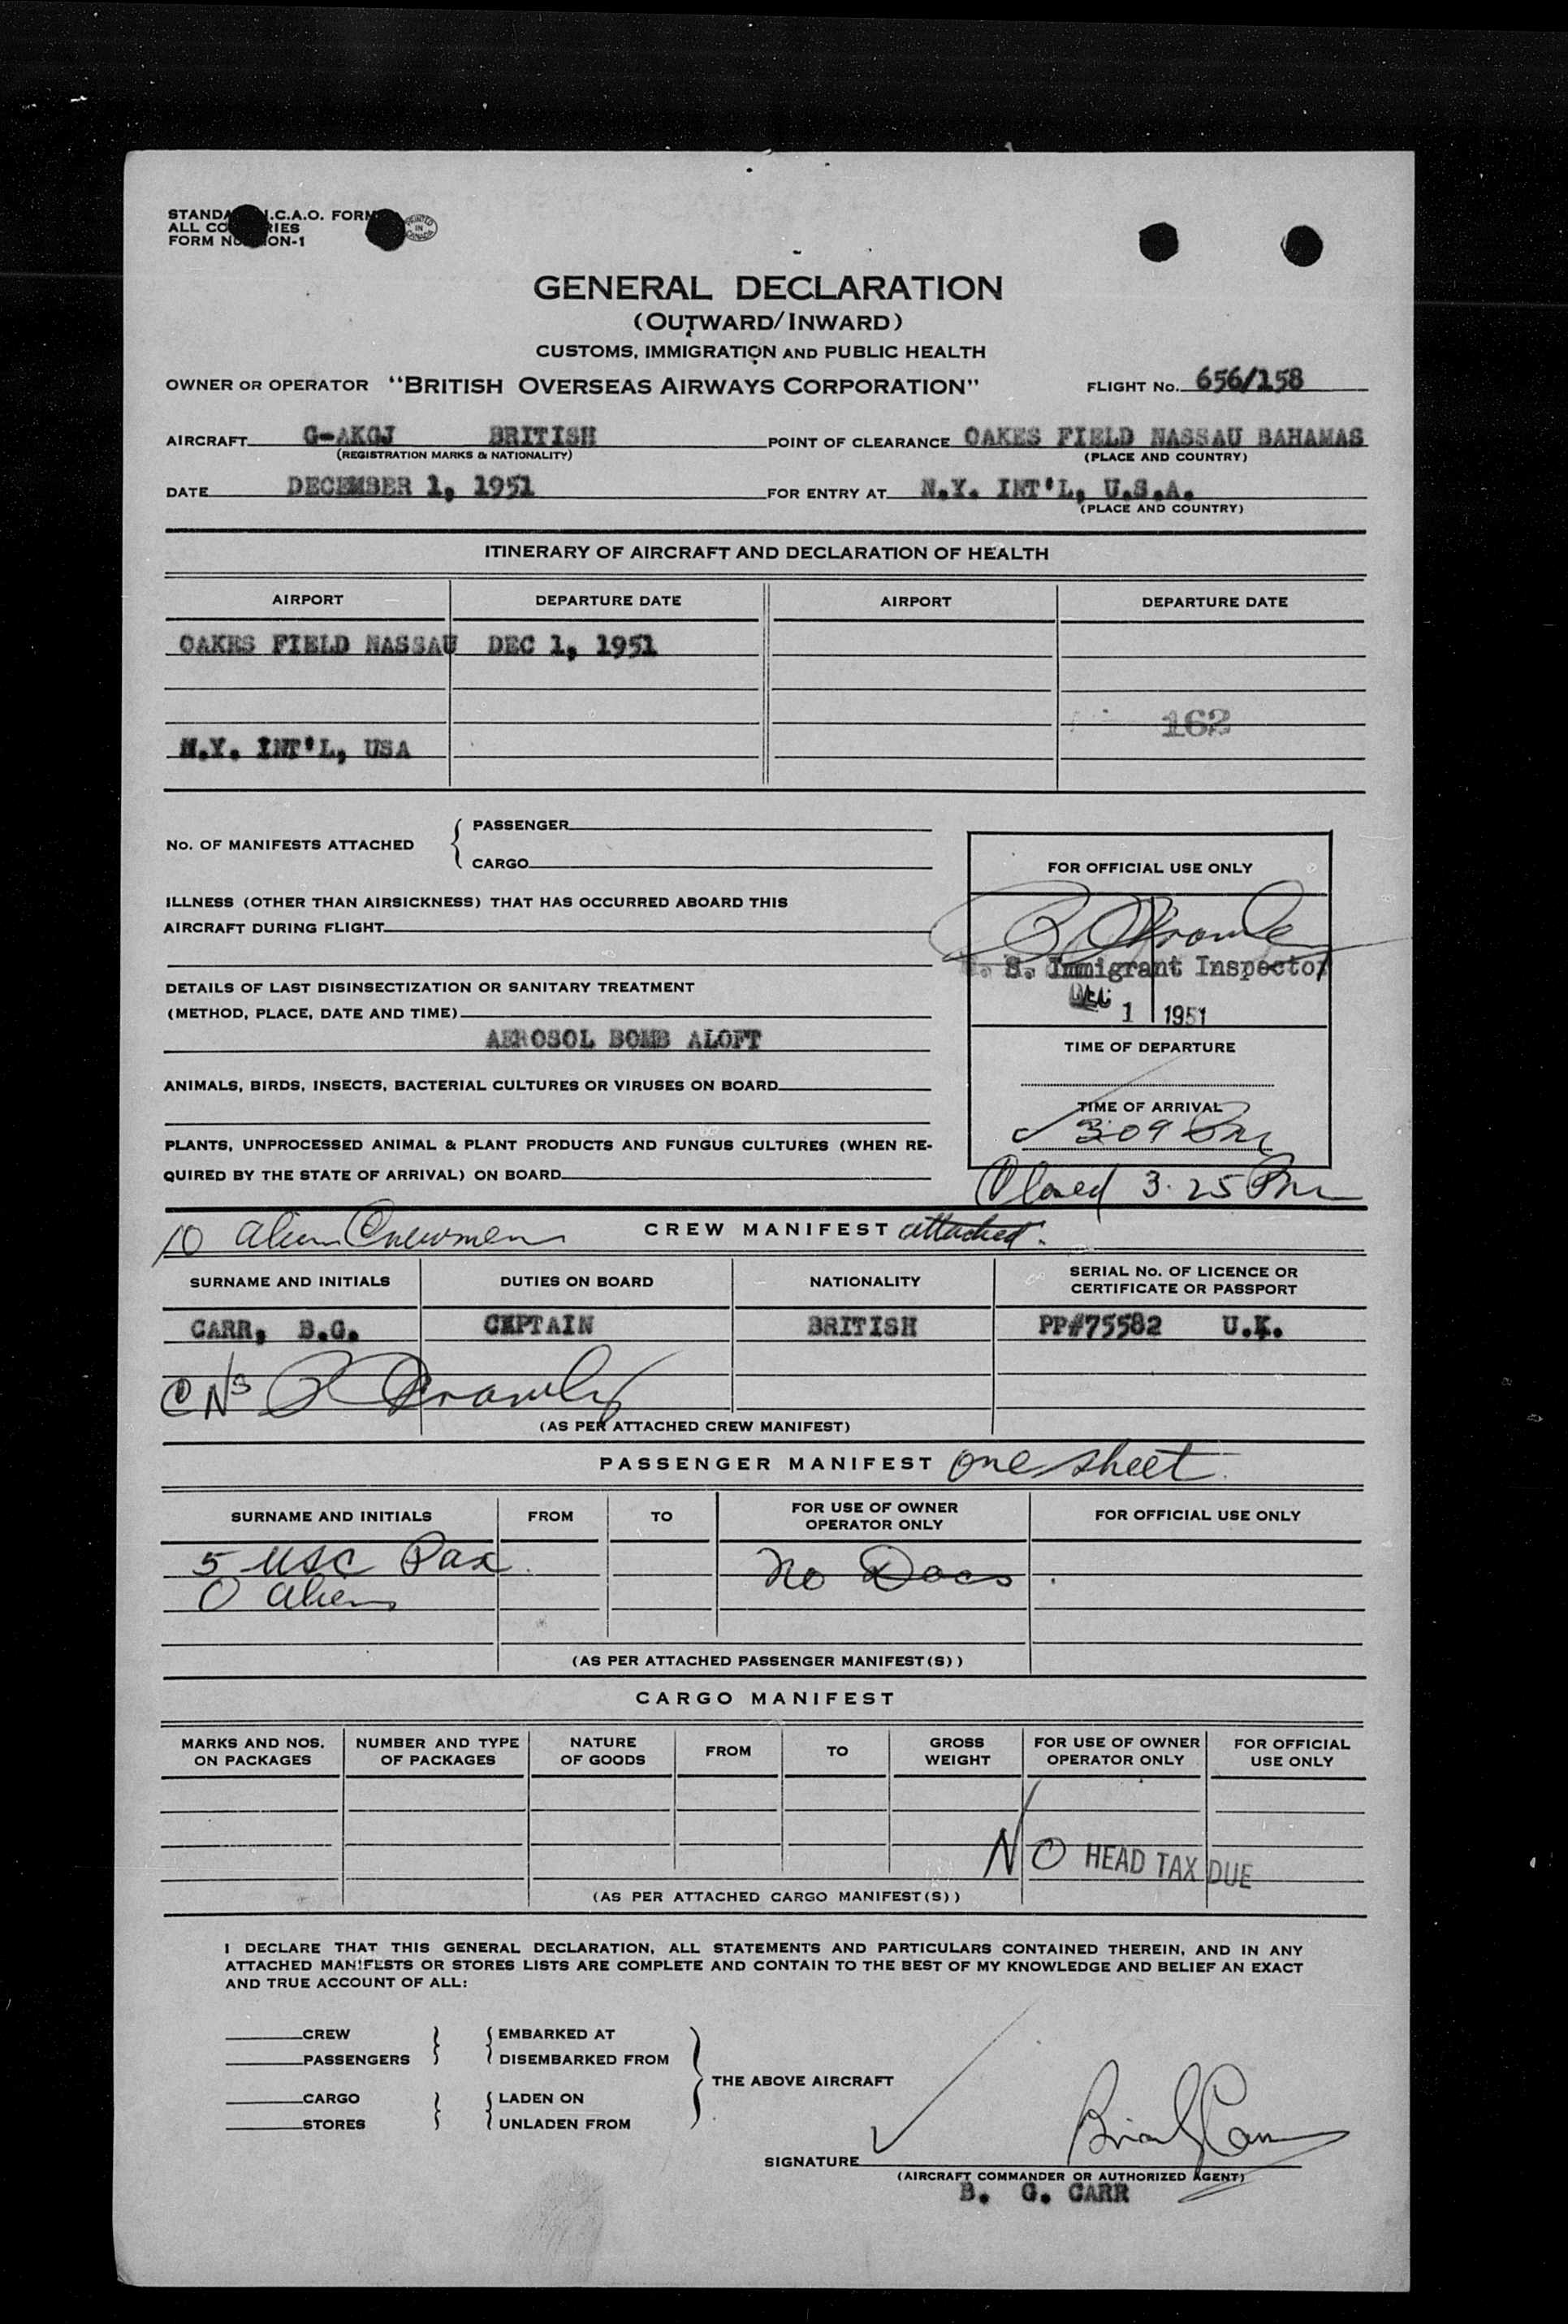 STANDA .C.A.O. FORM
ALL CO RIES
FORM NO. ON-1
PRINTED IN CANADA
GENERAL DECLARATION
(OUTWARD/INWARD)
CUSTOMS, IMMIGRATION AND PUBLIC HEALTH
OWNER OR OPERATOR "BRITISH OVERSEAS AIRWAYS CORPORATION" FLIGHT No. 656/158
AIRCRAFT G-AKGJ BRITISH POINT OF CLEARANCE OAKES FIELD NASSAU BAHAMAS
(REGISTRATION MARKS & NATIONALITY) (PLACE AND COUNTRY)
DATE DECEMBER 1, 1951 FOR ENTRY AT N.Y. INT'L, U.S.A.
(PLACE AND COUNTRY)
ITINERARY OF AIRCRAFT AND DECLARATION OF HEALTH
AIRPORT DEPARTURE DATE AIRPORT DEPARTURE DATE
OAKES FIELD NASSAU DEC 1, 1951
162
N.Y. INT'L, USA
No. OF MANIFESTS ATTACHED { PASSENGER
CARGO
ILLNESS (OTHER THAN AIRSICKNESS) THAT HAS OCCURRED ABOARD THIS
AIRCRAFT DURING FLIGHT
DETAILS OF LAST DISINSECTIZATION OR SANITARY TREATMENT
(METHOD, PLACE, DATE AND TIME)
AEROSOL BOMB ALOFT
ANIMALS, BIRDS, INSECTS, BACTERIAL CULTURES OR VIRUSES ON BOARD
PLANTS, UNPROCESSED ANIMAL & PLANT PRODUCTS AND FUNGUS CULTURES (WHEN RE-
QUIRED BY THE STATE OF ARRIVAL) ON BOARD
FOR OFFICIAL USE ONLY
. S. Immigrant Inspector
DEC 1 1951
TIME OF DEPARTURE
TIME OF ARRIVAL
309 Pm
Closed 3.25 Pm
10 alien Crewmen CREW MANIFEST attached.
SURNAME AND INITIALS DUTIES ON BOARD NATIONALITY SERIAL No. OF LICENCE OR
CERTIFICATE OR PASSPORT
CARR, B.G. CAPTAIN BRITISH PP#75582 U.K.
(AS PER ATTACHED CREW MANIFEST)
PASSENGER MANIFEST one sheet.
SURNAME AND INITIALS FROM TO FOR USE OF OWNER
OPERATOR ONLY FOR OFFICIAL USE ONLY
5 USC Pax. No Docs.
0 alien
(AS PER ATTACHED PASSENGER MANIFEST(S))
CARGO MANIFEST
MARKS AND NOS.
ON PACKAGES NUMBER AND TYPE
OF PACKAGES NATURE
OF GOODS FROM TO GROSS
WEIGHT FOR USE OF OWNER
OPERATOR ONLY FOR OFFICIAL
USE ONLY
NO HEAD TAX DUE
(AS PER ATTACHED CARGO MANIFEST(S))
I DECLARE THAT THIS GENERAL DECLARATION, ALL STATEMENTS AND PARTICULARS CONTAINED THEREIN, AND IN ANY
ATTACHED MANIFESTS OR STORES LISTS ARE COMPLETE AND CONTAIN TO THE BEST OF MY KNOWLEDGE AND BELIEF AN EXACT
AND TRUE ACCOUNT OF ALL:
CREW EMBARKED AT
PASSENGERS DISEMBARKED FROM
THE ABOVE AIRCRAFT
CARGO LADEN ON
STORES UNLADEN FROM
SIGNATURE
(AIRCRAFT COMMANDER OR AUTHORIZED AGENT)
B. G. CARR